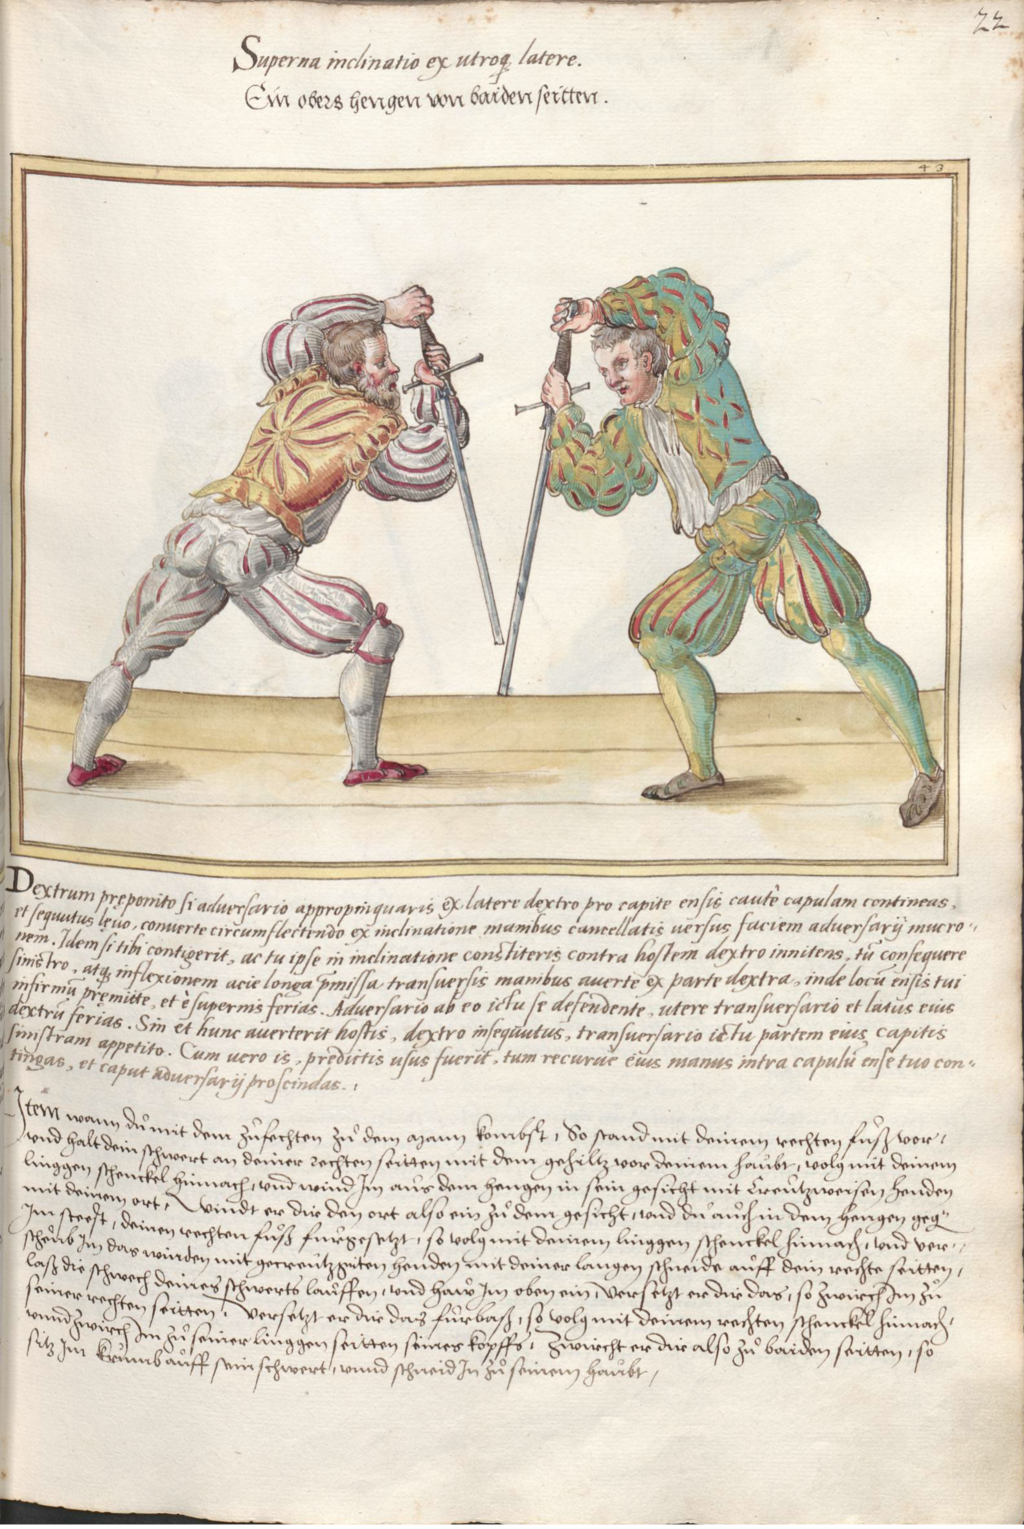 22
Superna inclinatio ex utroq latere.
Ein obers hengen von baiden seitten.
43
Dextrum preponito si adversario appropinquaris ex latere dextro pro capite ensis caute capulam contineas,
et sequutus levo, converte circumflectendo ex inclinatione manibus cancellatis versus faciem adversarij mucro-
nem. Idem si tibi contigerit, ac tu ipse in inclinatione constiteris contra hostem dextro innitens, tũ consequere
sinistro, atq inflexionem acie longa p̃missa transversis manibus averte ex parte dextra, inde locũ ensis tui
infirmũ premitte, et è supernis ferias. Adversario ab eo ictu se defendente, utere transversario et latus eius
dextrũ ferias. Sin et hunc averterit hostis, dextro insequutus, transversario ictu partem eius capitis
sinistram appetito. Cum vero is, predictis usus fuerit, tum recurve eius manus intra capulũ ense tuo con-
tingas, et caput adversarij proscindas.
Item wann du mit dem zufechten zu dem mann kombst, So stand mit deinem rechten fuß vor,
vnd halt dein schwert an deiner rechten seitten mit dem gehiltz vor deinem haubt, volg mit deinem
linggen schenckel hinnach, vnd wind Im aus dem hengen in sein gesicht mit Creutzweisen henden
mit deinem ort, Windt er dir den ort also ein zu dem gesicht, vnd du auch in dem hengen geg
Im steest, deinen rechten fuß furgesetzt, so volg mit deinem linggen schenckel hinnach, vnd ver,
scheub Im das winden mit gecreutzgůten henden mit deiner langen schneide auff dein rechte seitten,
laß die schwech deines schwerts lauffen, vnd haw Im oben ein, Versetzt er dir das, so zwirch Im zu
seiner rechten seitten, Versetzt er dir das furbaß, so volg mit deinem rechten schenckel hinnach,
vnnd zwirch Im zu seiner linggen seitten seines kopffs, Zwircht er dir also zu baiden seitten, so
sitz Im krumb auff sein schwert, vnnd schneid In zu seinem haubt,